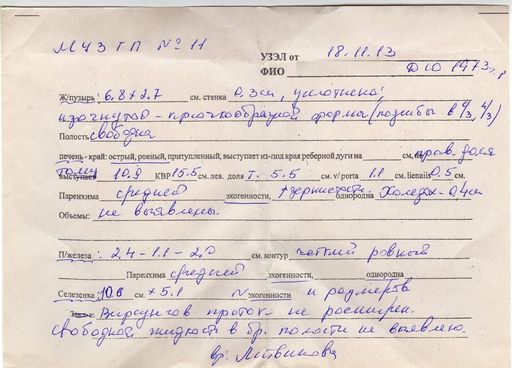 МУЗ ГП № 11
УЗЭЛ от 18.11.13
ФИО 1973 г.р
Ж/пузырь: 6,8 х 2.7 см. стенка 0,3 см, уплотнена
изогнутой формы (изгибы в
Полость свободна
печень - край: острый, ровный, притупленный, выступает из-под края реберной дуги на см. прав. доля
выступает КВР 15.5 см. лев. доля т. 5.5 см. v/ porta 1.1 см. lienalis 0.5 см.
Паренхима средней эхогенности, однородна Холедох - 0,4 см
Объемы: не выявлены.
П/железа: 2,4 - 1.1 - 2,0 см. контур четкий ровный
Паренхима средней эхогенности, однородна
Селезенка: 10.6 см х 5.1 N эхогенности и размеров
Вирсунгов проток - не расширен.
Свободной жидкости в бр. полости не выявлено
вр: Литвинова